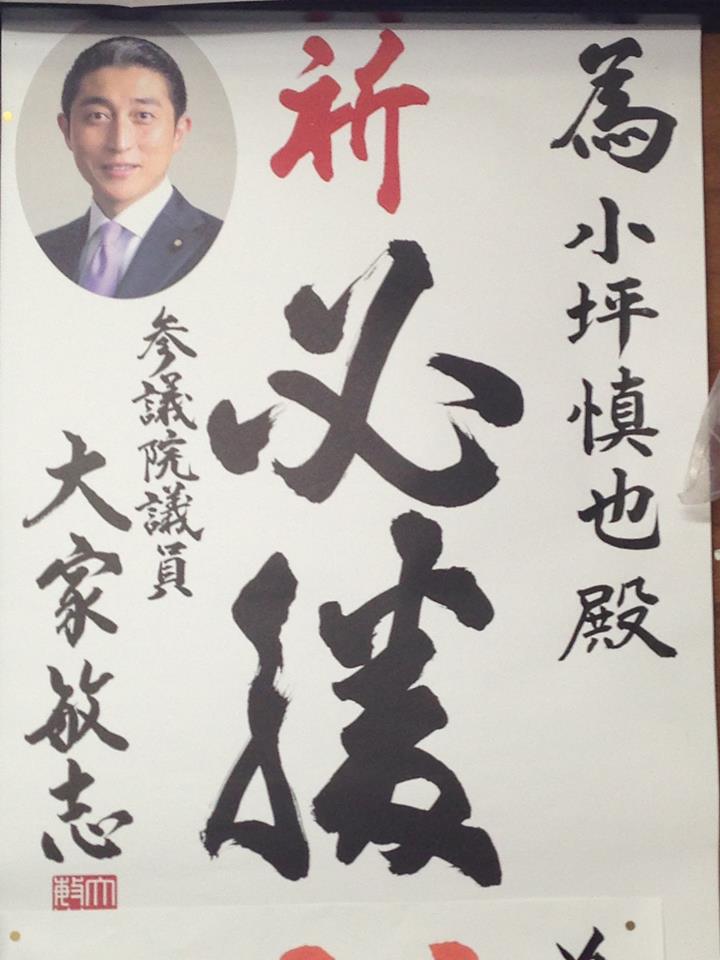 為小坪慎也殿
祈
必勝
参議院議員
大家敏志